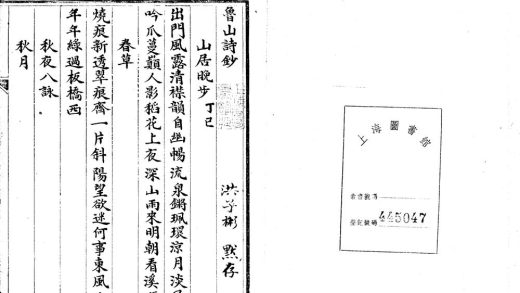 上海圖書館
索書號碼
登記號碼 445047
魯山詩鈔 洪子彬 默存
山居晚步 丁巳
出門風露清襟韻自幽暢流泉鏘珮環涼月淡
吟瓜蔓巔人影稻花上夜深山雨來明朝看溪
春草
燒痕新透翠痕齊一片斜陽望欲迷何事東風
年年綠過板橋西
秋夜八詠
秋月